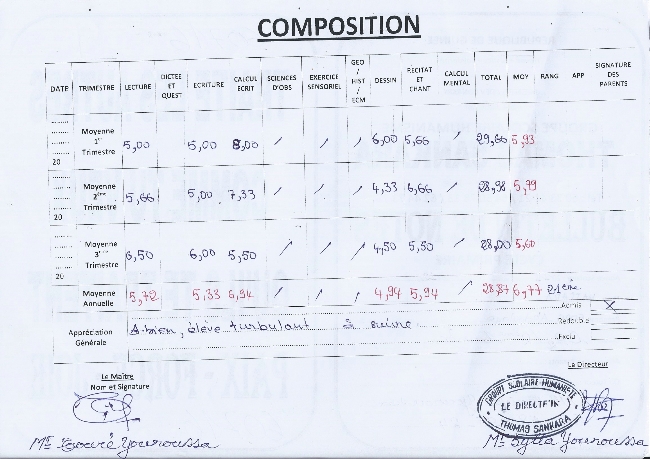 COMPOSITION
DATE TRIMESTRE LECTURE DICTEE ET QUEST ECRITURE CALCUL ECRIT SCIENCES D'OBS EXERCICE SENSORIEL GEO / HIST / ECM DESSIN RECITAT ET CHANT CALCUL MENTAL TOTAL MOY RANG APP SIGNATURE DES PARENTS
20 Moyenne 1er Trimestre 5,00 5,00 8,00 / / / 6,00 5,66 / 29,66 5,93
20 Moyenne 2ème Trimestre 5,66 5,00 7,33 / / / 4,33 6,66 / 28,98 5,79
20 Moyenne 3ème Trimestre 6,50 6,00 5,50 / / / 4,50 5,50 / 28,00 5,60
Moyenne Annuelle 5,72 5,33 6,94 / / / 4,94 5,94 28,87 6,77 21ème
Admis X
Redouble
Exclu
Appréciation Générale A. bien, élève turbulant à suivre
Le Maître
Nom et Signature
Le Directeur
GROUPE SCOLAIRE HUMANISTE
LE DIRECTEUR
THOMAS SANKARA
Mr Younoussa
Mr Sylla Younoussa